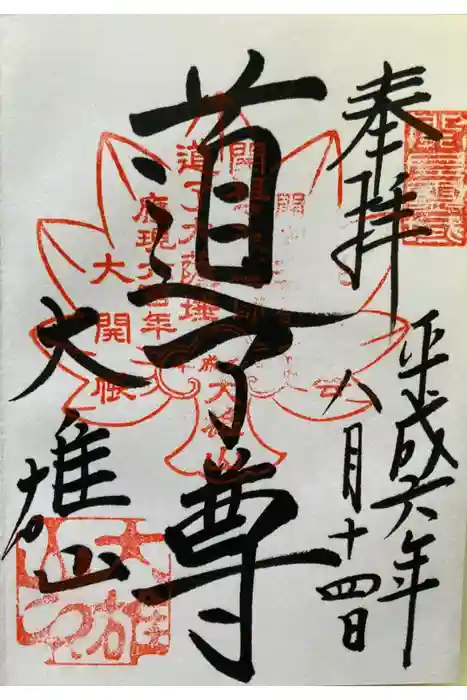 奉拝
平成六年
八月十四日
道了尊
大雄山
道了大薩埵
大開帳
大雄山